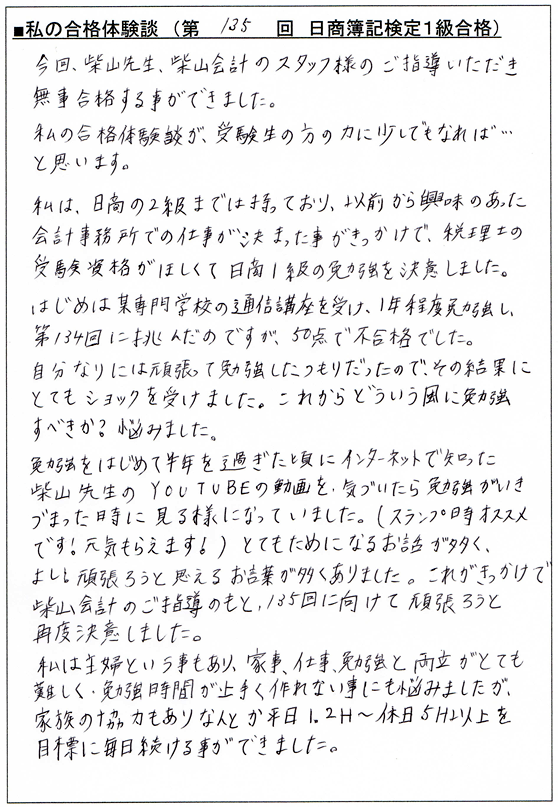 ■私の合格体験談（第 135 回 日商簿記検定1級合格）
今回、柴山先生、柴山会計のスタッフ様のご指導いただき
無事合格する事ができました。
私の合格体験談が、受験生の方の力に少しでもなれば…
と思います。
私は、日商の2級までは持っており、以前から興味のあった
会計事務所での仕事が決まった事がきっかけで、税理士の
受験資格がほしくて日商1級の勉強を決意しました。
はじめは某専門学校の通信講座を受け、1年程度勉強し、
第134回に挑んだのですが、50点で不合格でした。
自分なりには頑張って勉強したつもりだったので、その結果に
とてもショックを受けました。これからどういう風に勉強
すべきか？悩みました。
勉強をはじめて半年を過ぎた頃にインターネットで知った
柴山先生のYOUTUBEの動画を、気づいたら勉強がいき
づまった時に見る様になっていました。（スランプ時オススメ
です！元気もらえます！）とてもためになるお話が多く、
よし！頑張ろうと思えるお言葉が多くありました。これがきっかけで
柴山会計のご指導のもと、135回に向けて頑張ろうと
再度決意しました。
私は主婦という事もあり、家事、仕事、勉強と両立がとても
難しく、勉強時間が上手く作れない事にも悩みましたが、
家族の協力もありなんとか平日1.2H〜休日5H以上を
目標に毎日続ける事ができました。